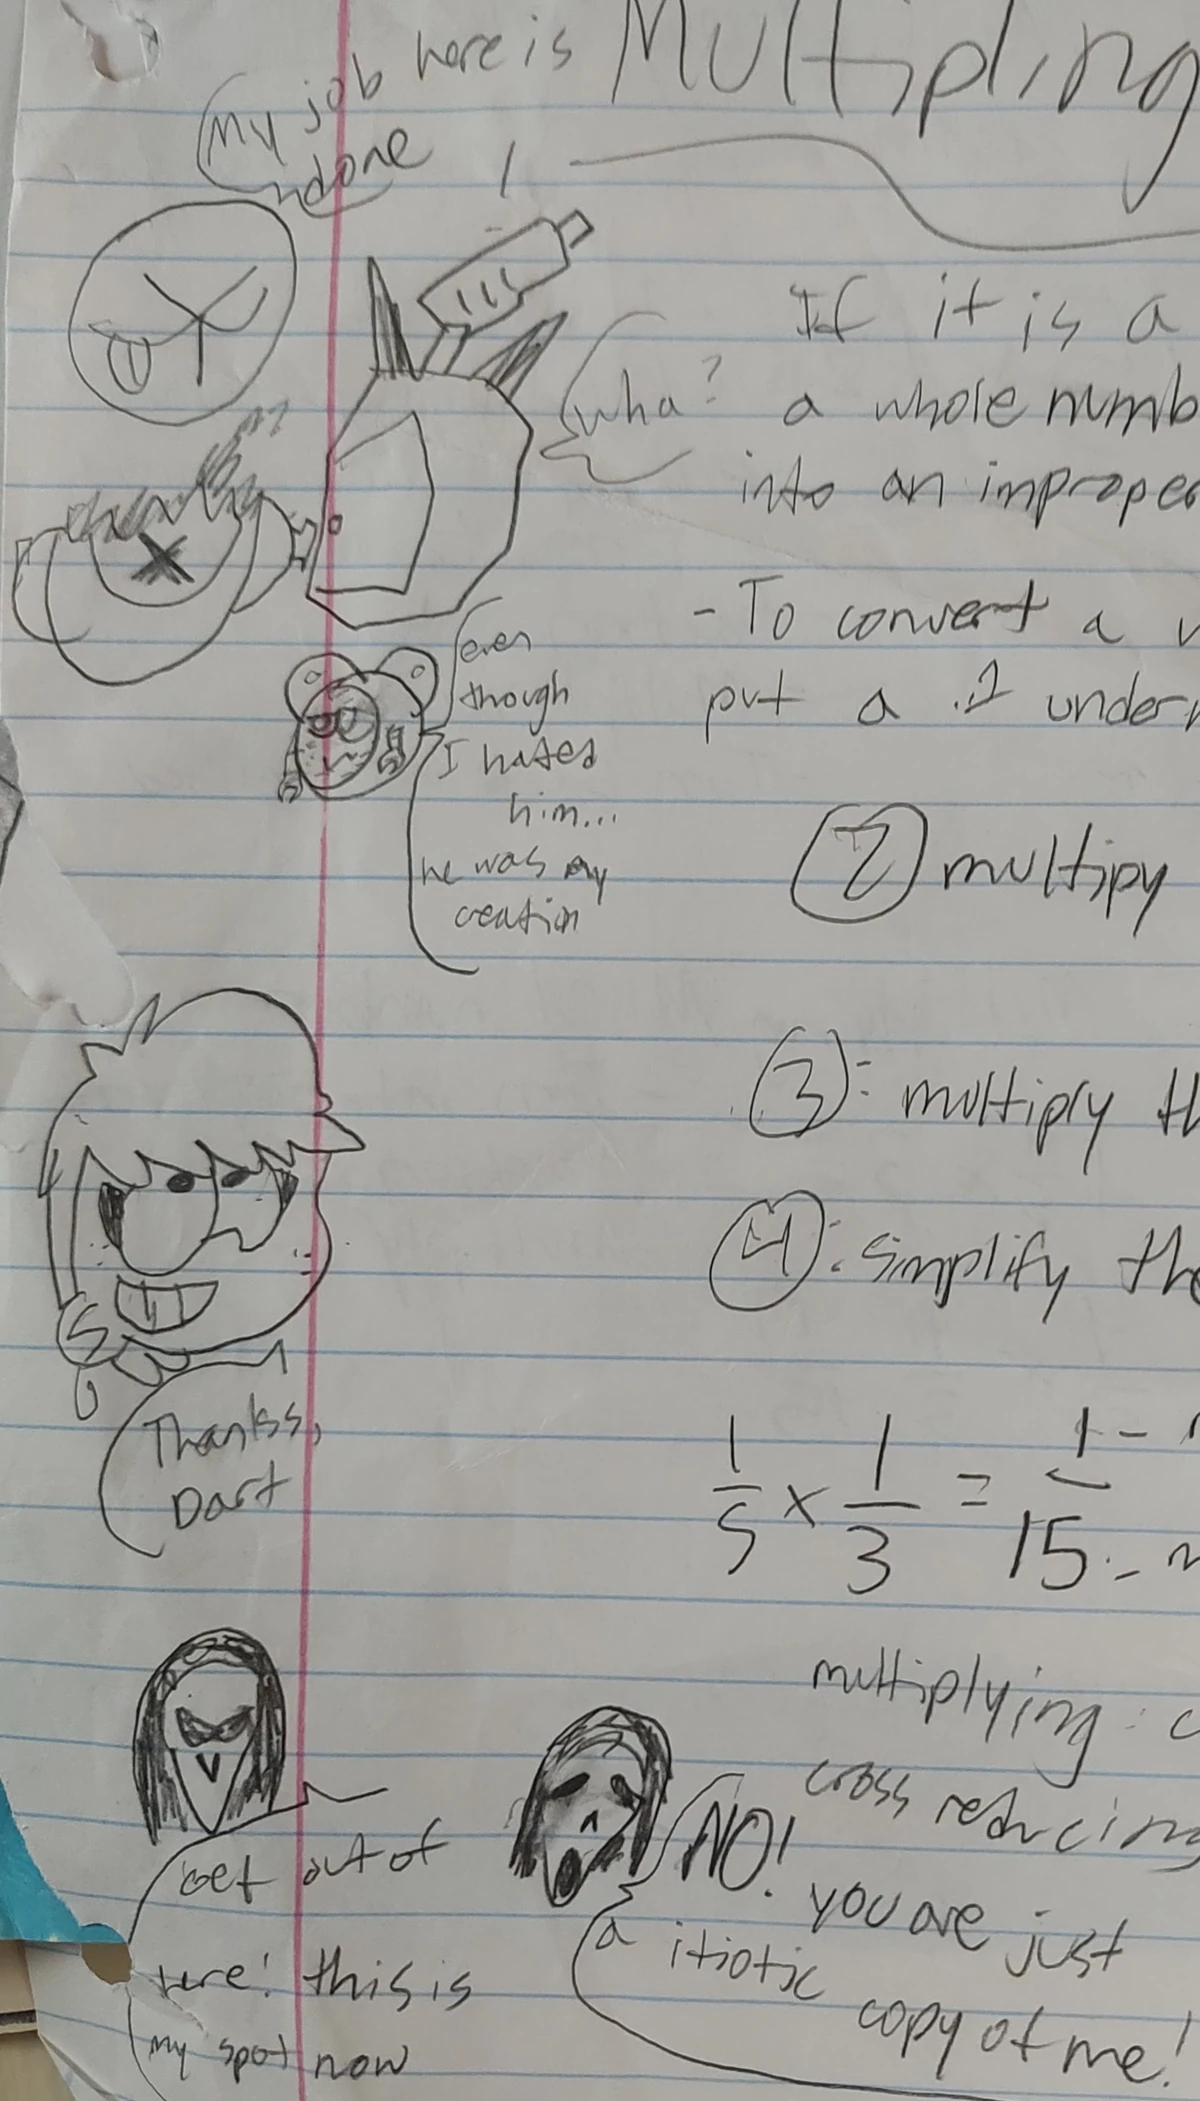 Multipling
My job here is
done
If it is a
wha?
a whole numb
into an improper
- To convert a
put a 1 under
even
though
I hated
him...
he was my
creation
2 multipy
3: multiply th
4: simplify the
Thanks,
Dart
1/5 x 1/3 = 1/15
multiplying: c
cross reducing
Get out of
here! this is
my spot now
NO!
you are just
a itiotic
copy of me!